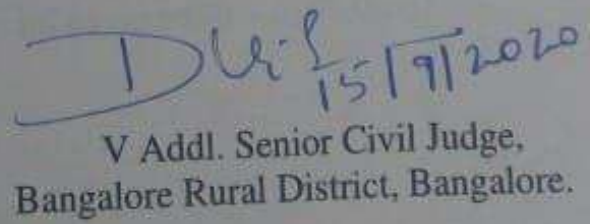 15/9/2020
V Addl. Senior Civil Judge,
Bangalore Rural District, Bangalore.